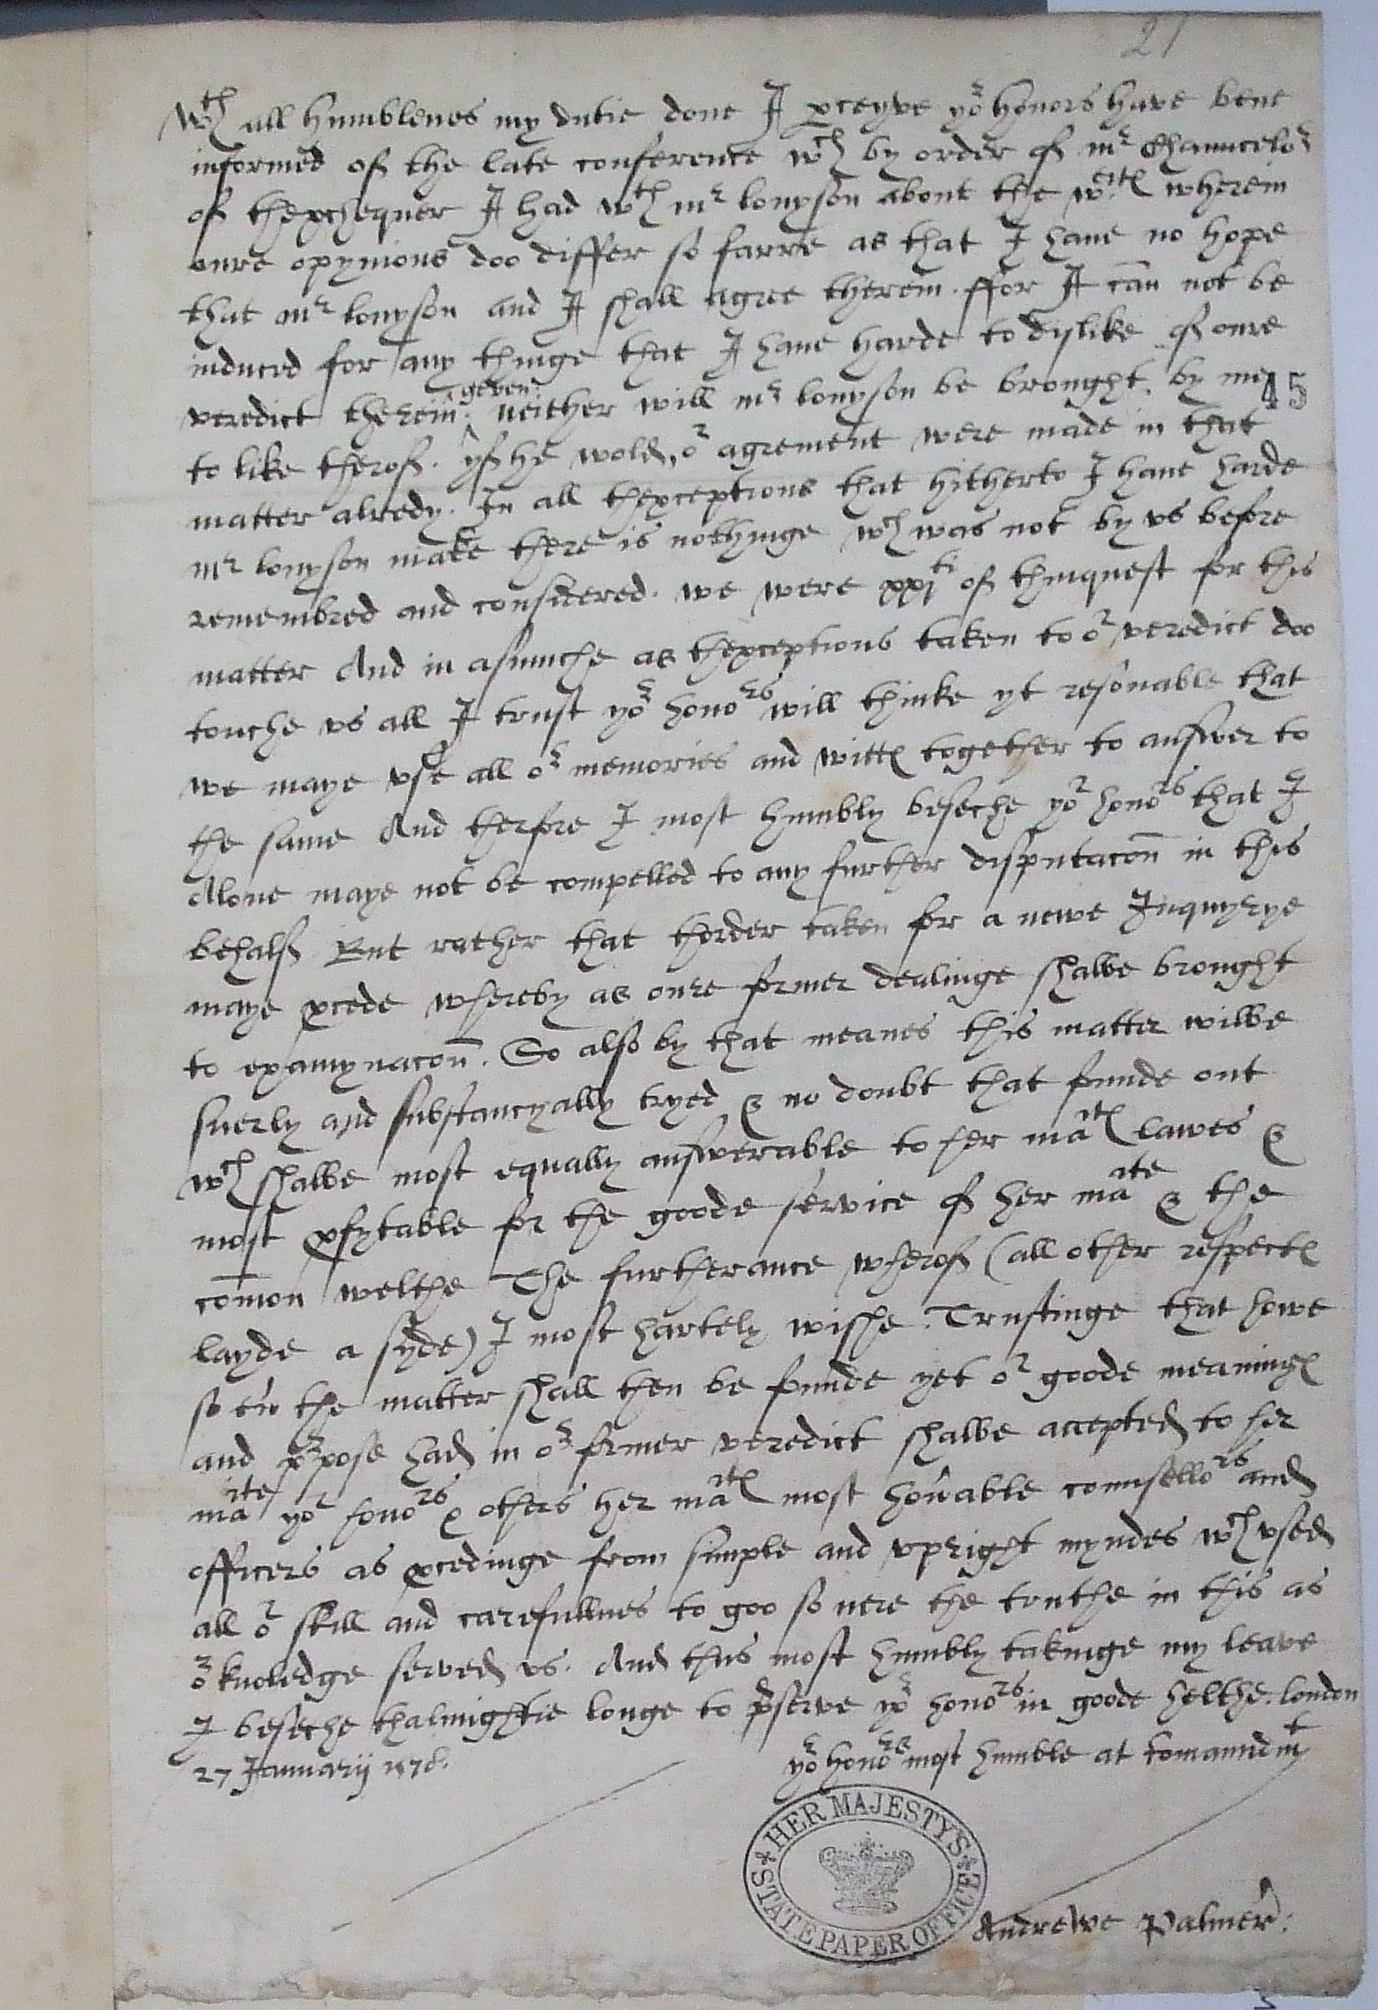 21
Wth all humblenes my dutie done I pceyve yor honors have bene
informed of the late conference wch by order of mr Chauncelor
of thexchequer I had wth mr lonyson about the wherein
oure opynions doo differ so farre as that I haue no hope
that mr lonyson and I shall agree therein. ffor I can not be
induced for any thinge that I haue harde to dislike of oure
geven
veredict therein neither will mr lonyson be brought by me
45
to like therof. yf he wold, or agrement were made in that
matter alredy. In all thexceptions that hitherto I haue harde
mr lonyson make there is nothinge wch was not by vs before
remembred and considered. we were xxjti of thinquest for this
matter And in asmuche as thexceptions taken to or veredict doo
touche vs all I trust yor honors will thinke yt resonable that
we maye vse all or memories and witts together to answer to
the same And therfore I most humbly beseche yor honors that I
Alone maye not be compelled to any further disputacon in this
behalf But rather that thorder taken for a newe Inquyrye
maye pcede whereby as oure former dealinge shalbe brought
to examynacon. So also by that meanes this matter wilbe
suerly and substancyally tryed & no doubt that funde out
wch shalbe most equally answerable to her mats lawes &
most pfytable for the goode service of her matie & the
comon welthe The furtherance wherof (all other respects
layde a syde) I most hartely wishe. Trustinge that howe
so eu the matter shall then be funde yet or goode meanings
and purpose had in or former veredict shalbe accepted to her
matie yor honors & others her mats most honable counsellors and
officers as pcedinge from simple and vpright myndes wch vsed
all or skill and carefullnes to goo so nere the truthe in this as
or knoledge served vs. And thus most humbly takinge my leave
I beseche thalmightie longe to pserve yor honors in goode helthe. london
27 Januarij 1578.
yor honors most humble at comaundmt
HER MAJESTY'S
STATE PAPER OFFICE
Andrewe Palmer: